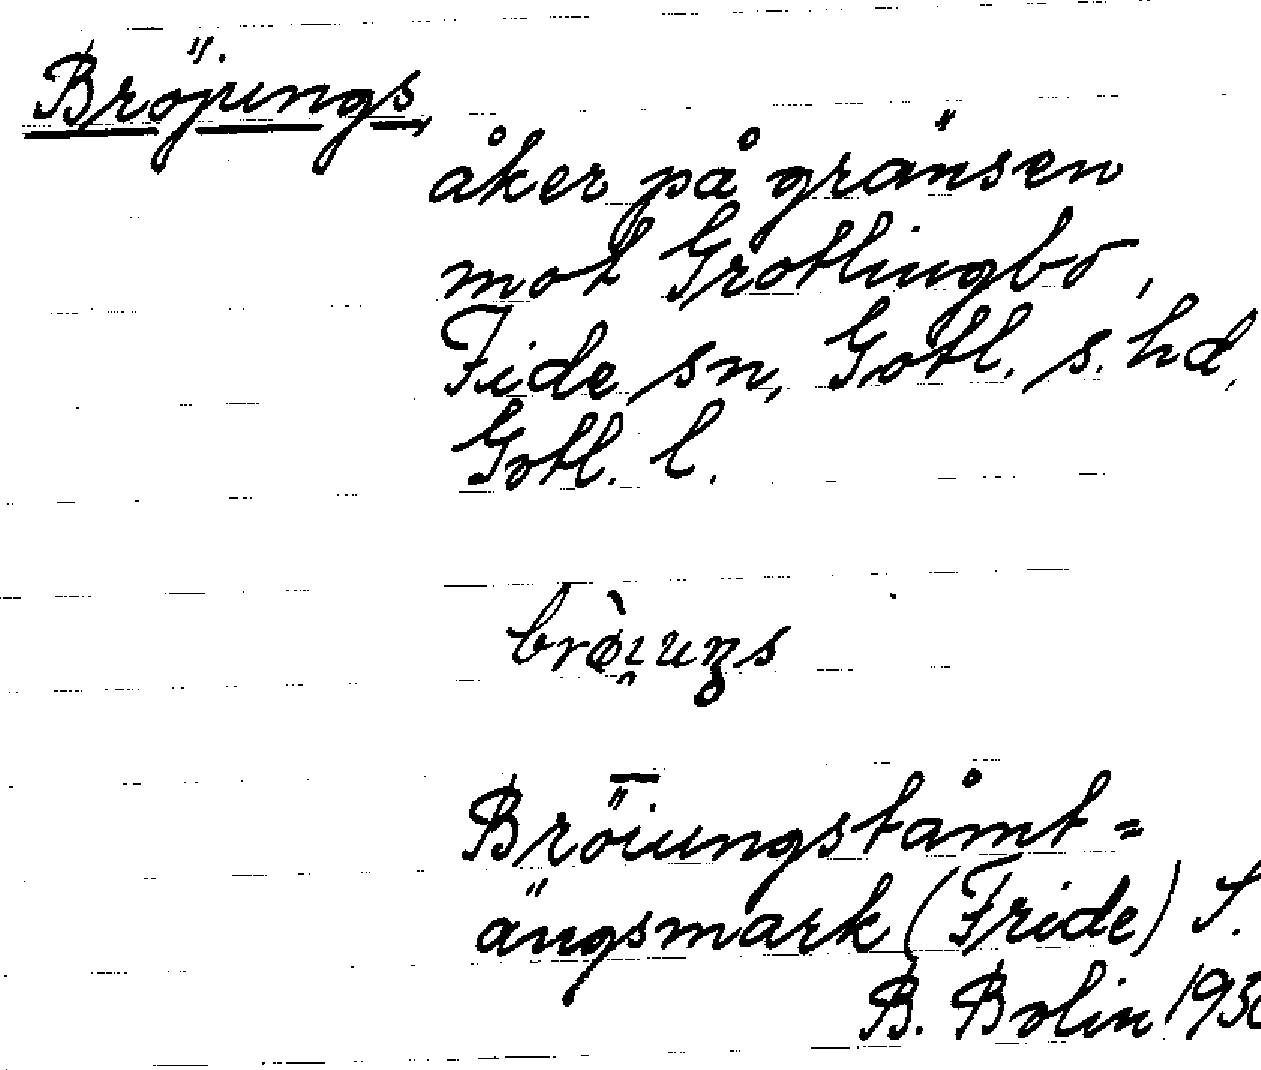 Bröjungs,
åker på gränsen
mot Grötlingbo,
Fide sn, Gotl. s. hd,
Gotl. l.
Bröiungståmt =
ängsmark (Fride) S.
B. Bolin